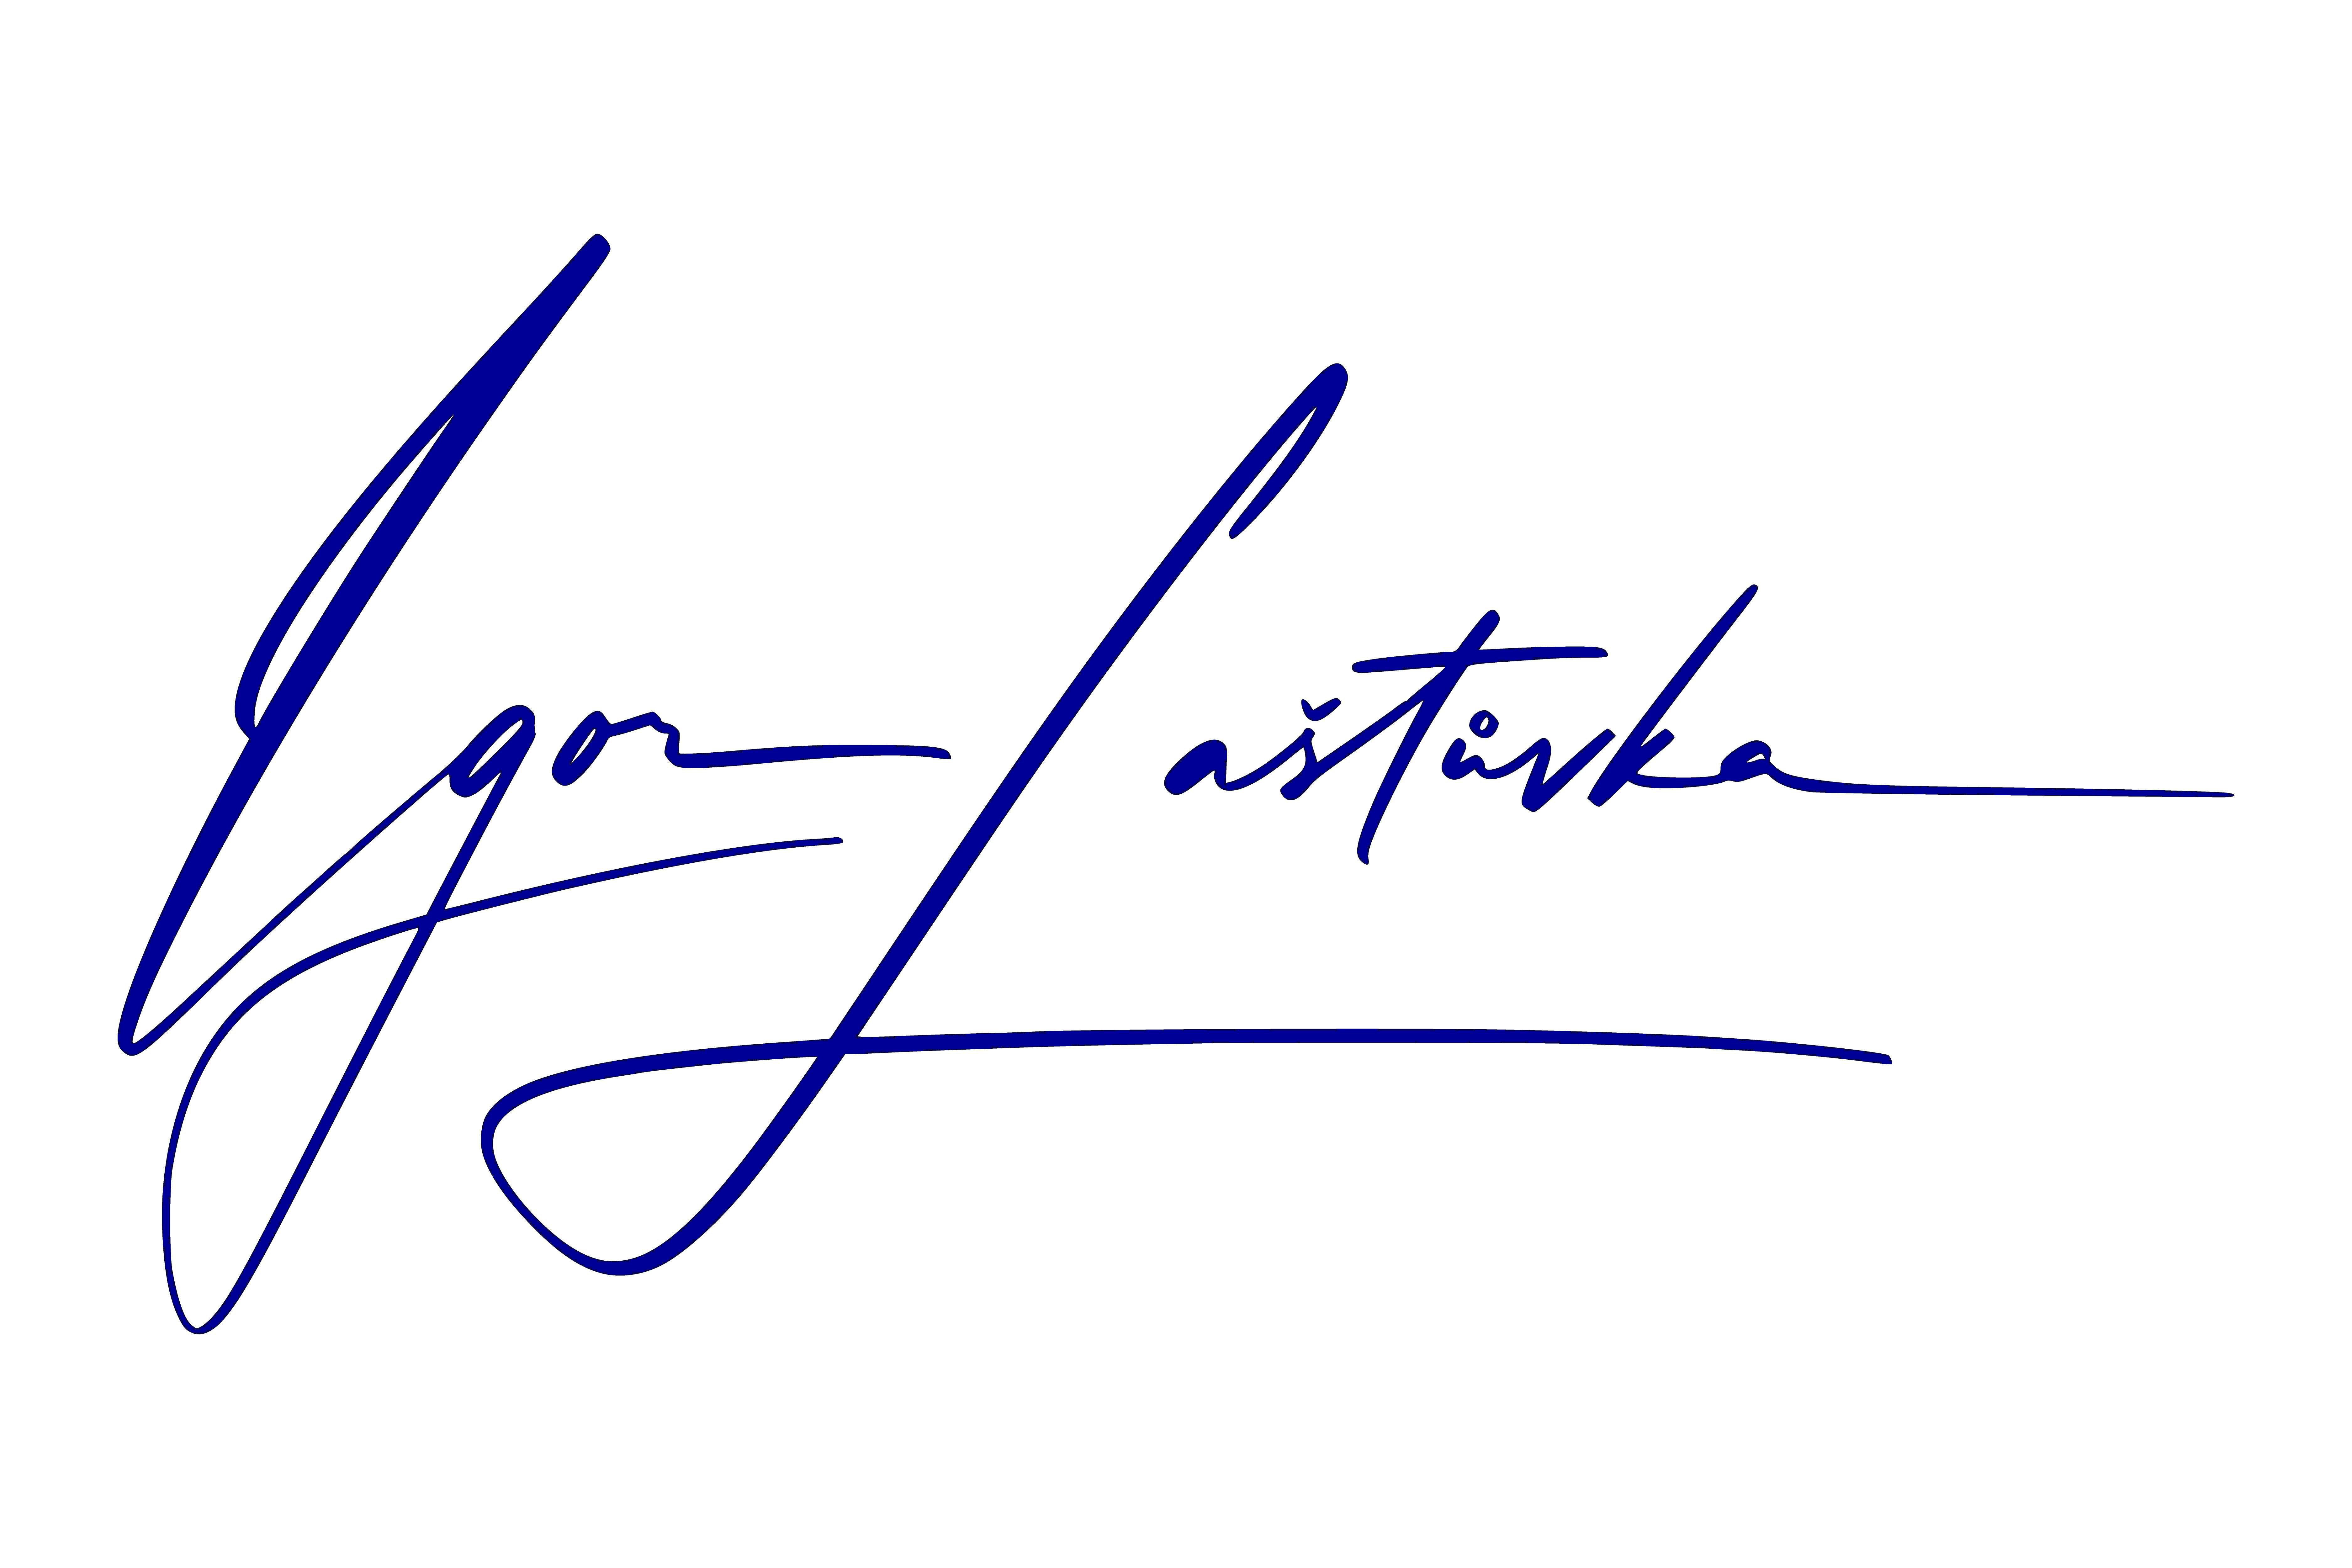 Igor Laštůvka